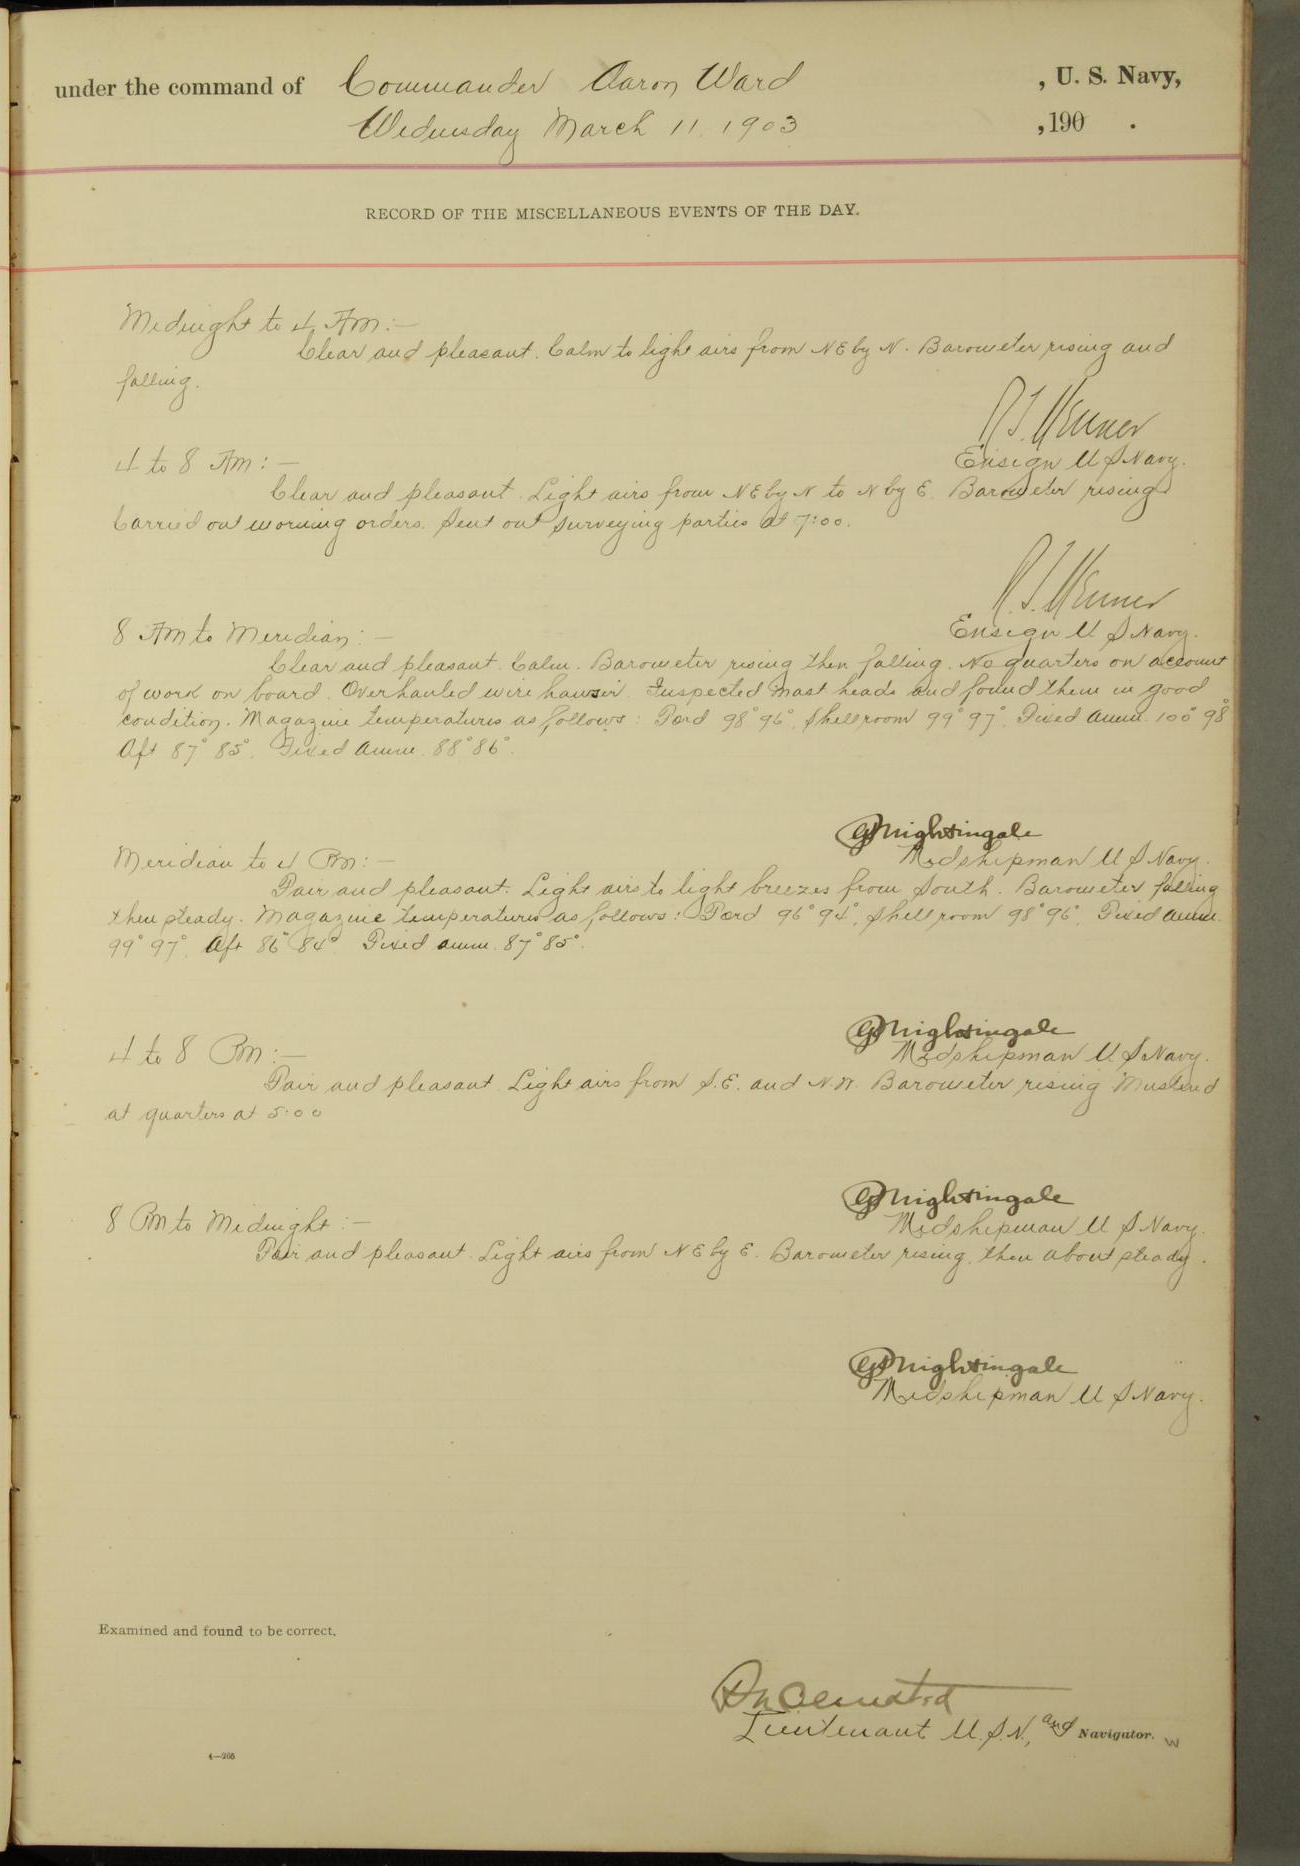 under the command of Commander Aaron Ward , U. S. Navy,
Wednesday March 11, 1903 , 190 .
RECORD OF THE MISCELLANEOUS EVENTS OF THE DAY.
Midnight to 4 AM:—
Clear and pleasant. Calm to light airs from NE by N. Barometer rising and
falling.
4 to 8 AM:—
Ensign U S Navy.
Clear and pleasant. Light airs from NE by N to N by E. Barometer rising
Carried out morning orders. Sent out surveying parties at 7:00.
8 AM to Meridian:—
Ensign U S Navy.
Clear and pleasant. Calm. Barometer rising then falling. No quarters on account
of work on board. Overhauled wire hawser. Inspected mast heads and found them in good
condition. Magazine temperatures as follows: Ford 98° 96°, Shell room 99° 97°, Fixed amm. 100° 98°
Aft 87° 85°. Fixed amm. 88° 86°.
Nightingale
Meridian to 4 PM:—
Midshipman U S Navy.
Fair and pleasant. Light airs to light breezes from South. Barometer falling
then steady. Magazine temperatures as follows: Ford 96° 94°, Shell room 98° 96°, Fixed amm.
99° 97°, Aft 86° 84° Fixed amm. 87° 85°.
Nightingale
4 to 8 PM:—
Midshipman U. S Navy.
Fair and pleasant. Light airs from S.E. and N.W. Barometer rising Mustered
at quarters at 5:00
Nightingale
8 PM to Midnight:—
Midshipman U S Navy.
Fair and pleasant. Light airs from NE by E. Barometer rising, then about steady.
Nightingale
Midshipman U S Navy.
Examined and found to be correct.
Lieutenant U.S.N., and Navigator. W
4—265